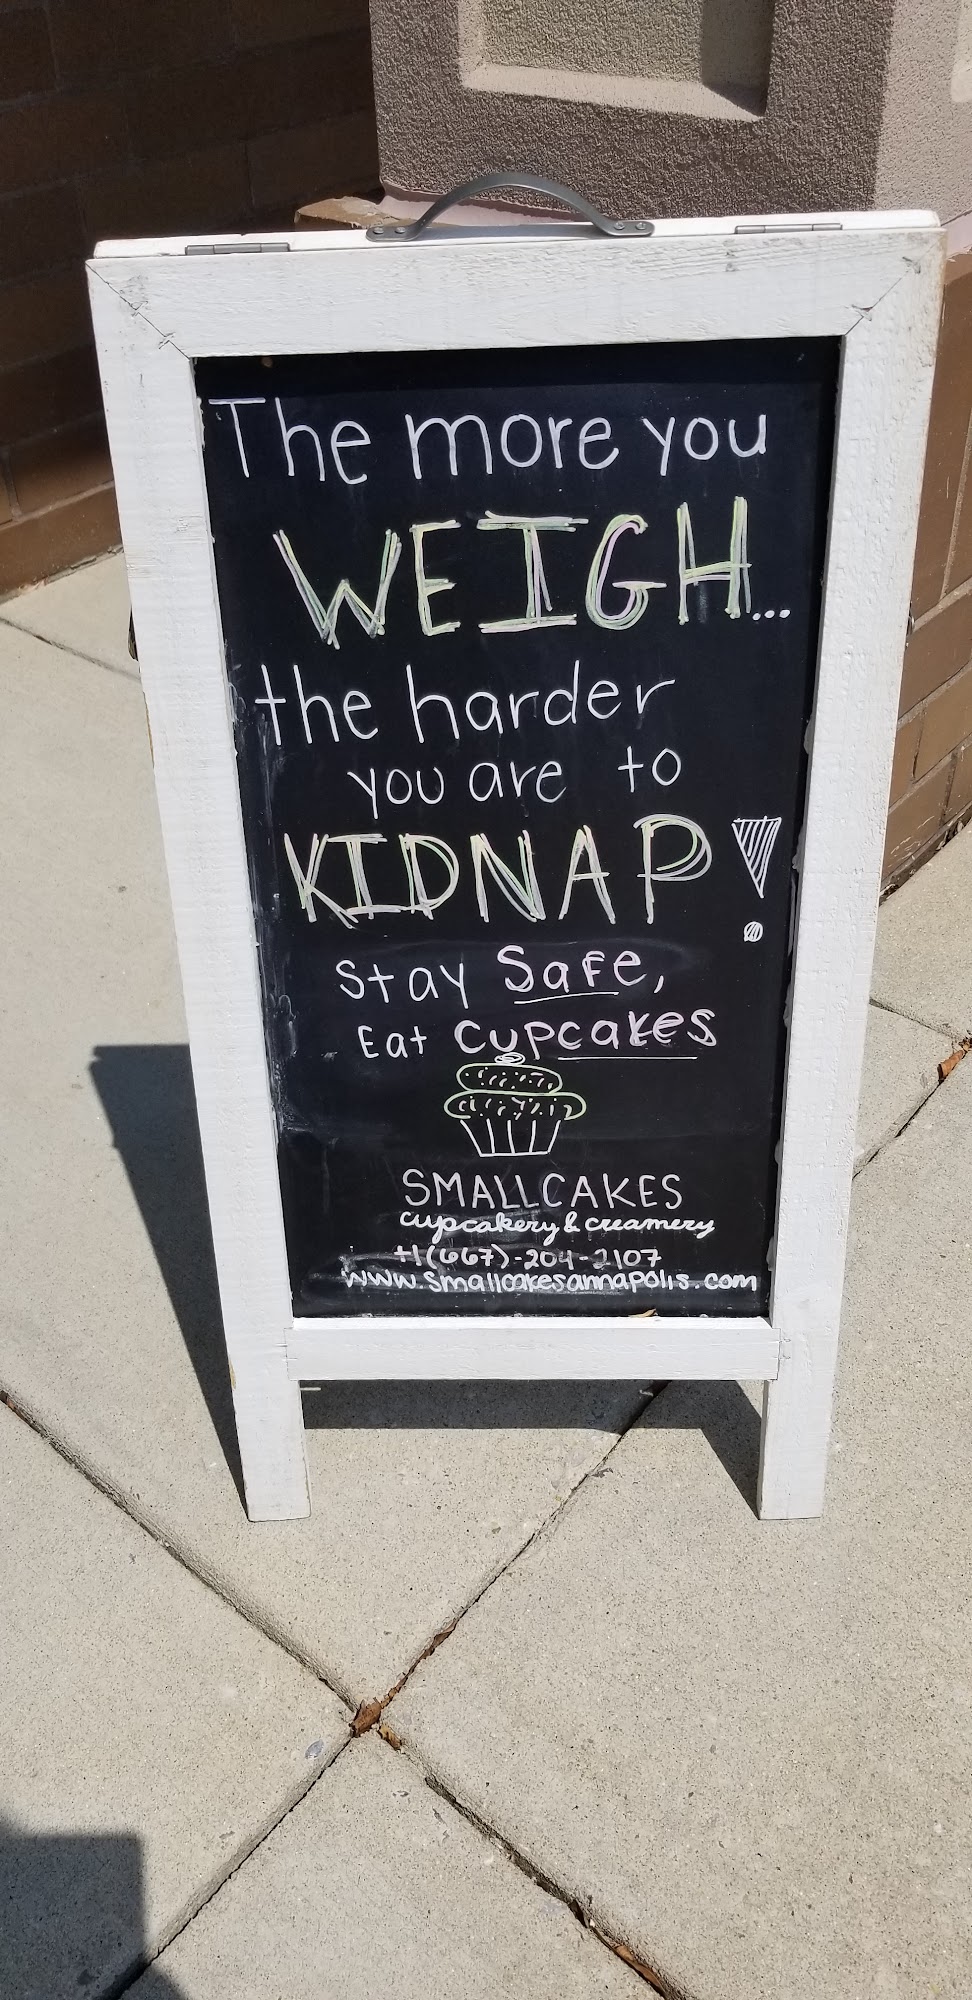 The more you
WEIGH...
the harder
you are to
KIDNAP!
Stay Safe,
Eat Cupcakes
SMALLCAKES
cupcakery & creamery
+1(667)-204-2107
www.smallcakesannapolis.com